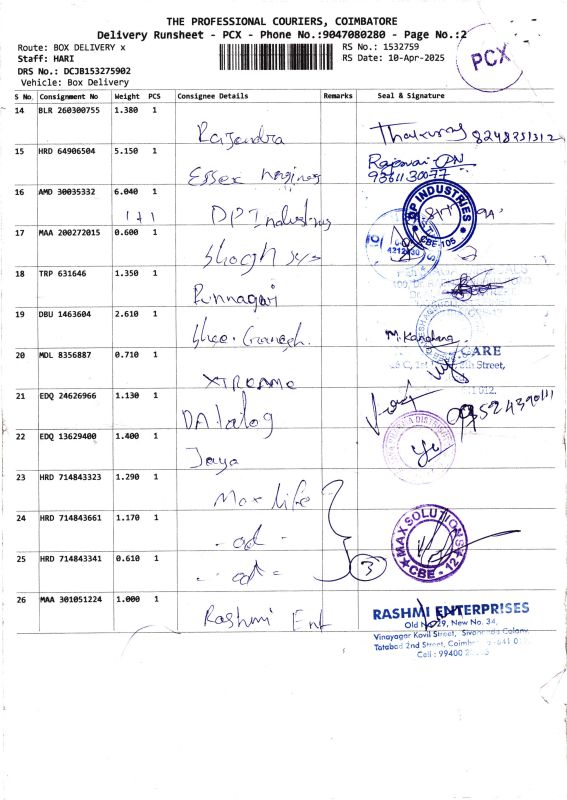 THE PROFESSIONAL COURIERS, COIMBATORE
Delivery Runsheet - PCX - Phone No.:9047080280 - Page No.:2
Route: BOX DELIVERY x
RS No.: 1532759
Staff: HARI
RS Date: 10-Apr-2025
DRS No.: DCJB153275902
Vehicle: Box Delivery
PCX
S No. Consignment No Weight PCS Consignee Details Remarks Seal & Signature
14 BLR 260300755 1.380 1
Rajendra
8248251312
15 HRD 64906504 5.150 1
Essex
9361130077
16 AMD 30035332 6.040 1
1+1 DP Industries
DP INDUSTRIES
CBE-105
17 MAA 200272015 0.600 1
18 TRP 631646 1.350 1
19 DBU 1463604 2.610 1
Shree. Ganesh.
20 MDL 8356887 0.710 1
CARE
Street,
XTREAME
21 EDQ 24626966 1.130 1
DATalog
22 EDQ 13629400 1.400 1
Jaya
23 HRD 714843323 1.290 1
Max life
24 HRD 714843661 1.170 1
- do -
25 HRD 714843341 0.610 1
- do -
3
MAX SOLUTIONS
CBE - 12
26 MAA 301051224 1.000 1
Rashmi Ent
RASHMI ENTERPRISES
Old No 29, New No. 34,
Vinayagar Kovil Street,
Tatabad 2nd Street,
Cell : 99400